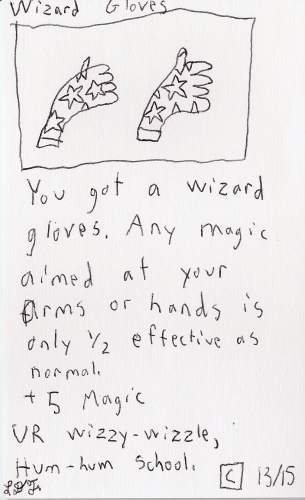 Wizard Gloves
You got a wizard
gloves. Any magic
aimed at your
Arms or hands is
only 1/2 effective as
normal.
+5 Magic
UR wizzy-wizzle,
Hum-hum School.
C 13/15